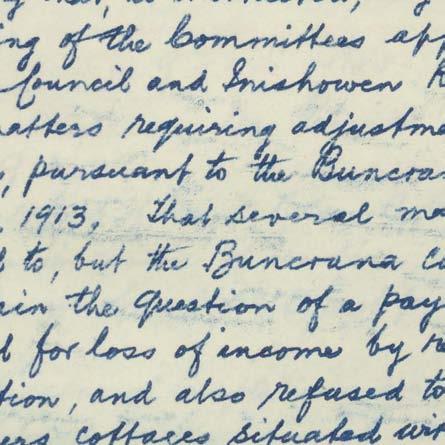 ing of the Committees app
Council and Inishowen R
matters requiring adjustme
, pursuant to the Buncra
, 1913. That several ma
d to, but the Buncrana Co
in the question of a pay
d for loss of income by r
tion, and also refused to
ers cottages situated wi